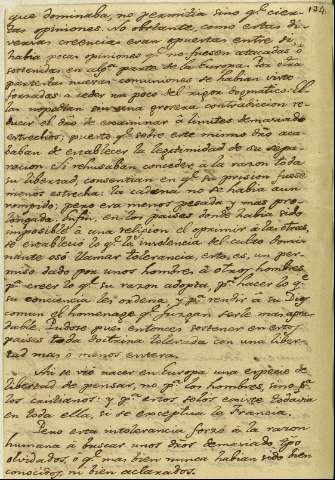 124
que dominaba, no permitia sino qe cier-
tas opiniones. No obstante, como estas di-
versas creencias eran opuestas entre si,
habia pocas opiniones qe no fuesen atacadas ó
sostenidas en algª parte de la Europa. Por otra
parte las nuevas comuniones se habian visto
forzadas a ceder un poco del rigor dogmatico. Ellas
no podian sin una grosera contradiccion re-
ducir el dro de examinar á limites demasiado
estrechos; puesto qe sobre este mismo dro aca-
baban de establecer la legitimidad de su sepa-
racion. Si rehusaban conceder á la razon toda
su libertad, consentian en qe su prision fuese
menos estrecha: la cadena no se habia aun
rompido; pero era menos pesada y mas pro-
longada. Enfin, en los paises donde habia sido
imposible á una religion el oprimir á las otras,
se estableció lo qe la insolencia del culto domi-
nante osó llamar tolerancia, esta es, un per-
miso dado por unos hombres á otros hombres
pª creer lo qe su razon adopta, pª hacer lo qe
su conciencia les ordena, y pª rendir á su Dios
comun el homenage qe juzgan serle mas agra-
dable. Pudose pues entonces sostener en estos
paises toda doctrina tolerada con una liber-
tad mas ó menos entera.
Asi se vió nacer en Europa una especie de
libertad de pensar, no pª los hombres, sino pª
los cristianos: y pª estos solos existe todavia
en toda ella, si se exceptua la Francia.
Pero esta intolerancia forzó á la razon
humana á buscar unos dros demasiado tpo
olvidados, ó qe mas bien nunca habian sido bien
conocidos, ni bien aclarados.